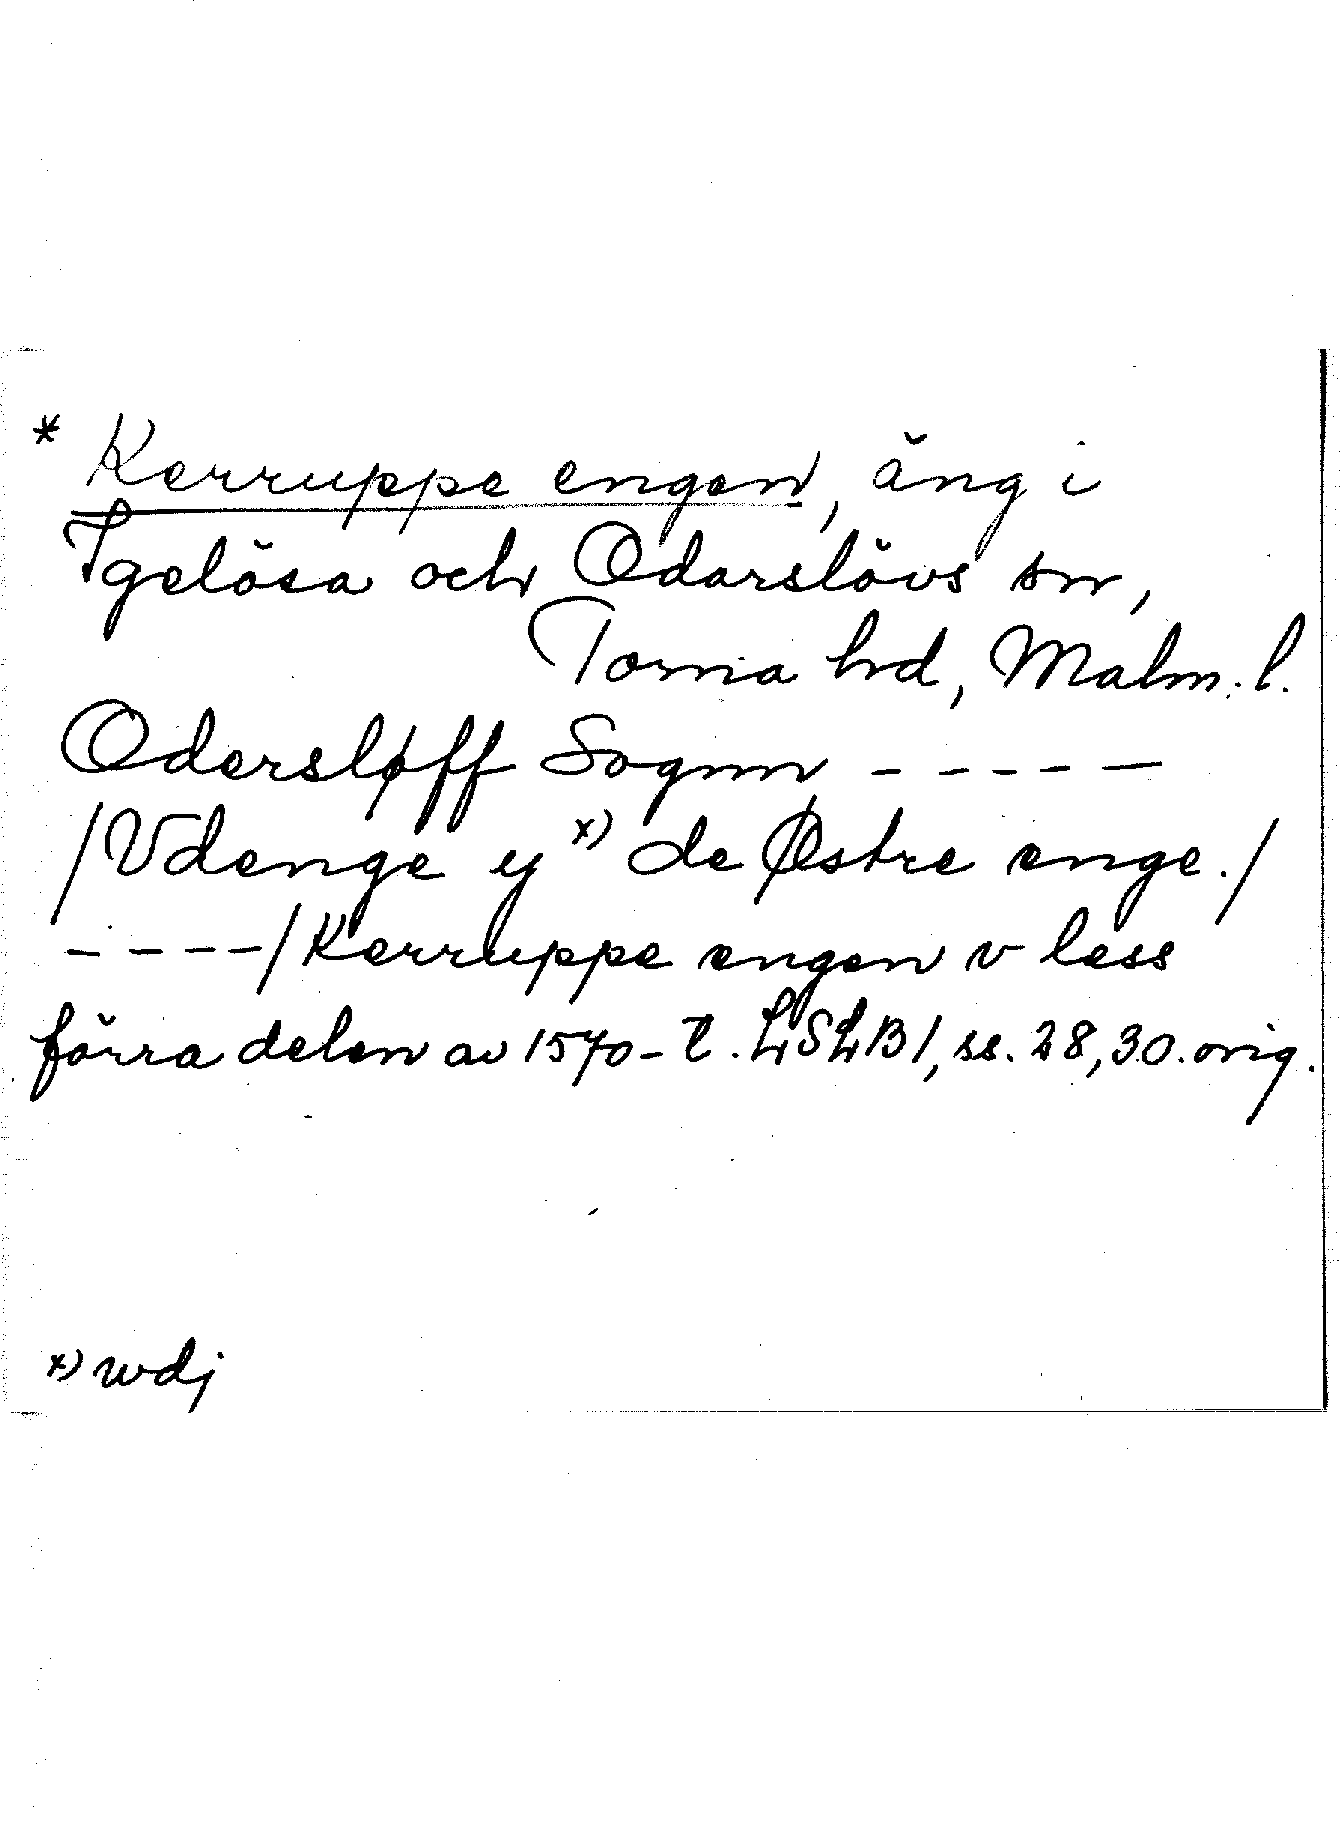 * Kerruppe engen, äng i
Igelösa och Odarslövs snr,
Torna hd, Malm. l.
Odersløff Sognn - - - - -
/Vdenge y x) de Østre enge./
- - - -/Kerruppe engen v less
förra delen av 1570-t. LSLB1, ss. 28, 30. orig.
x) wdj